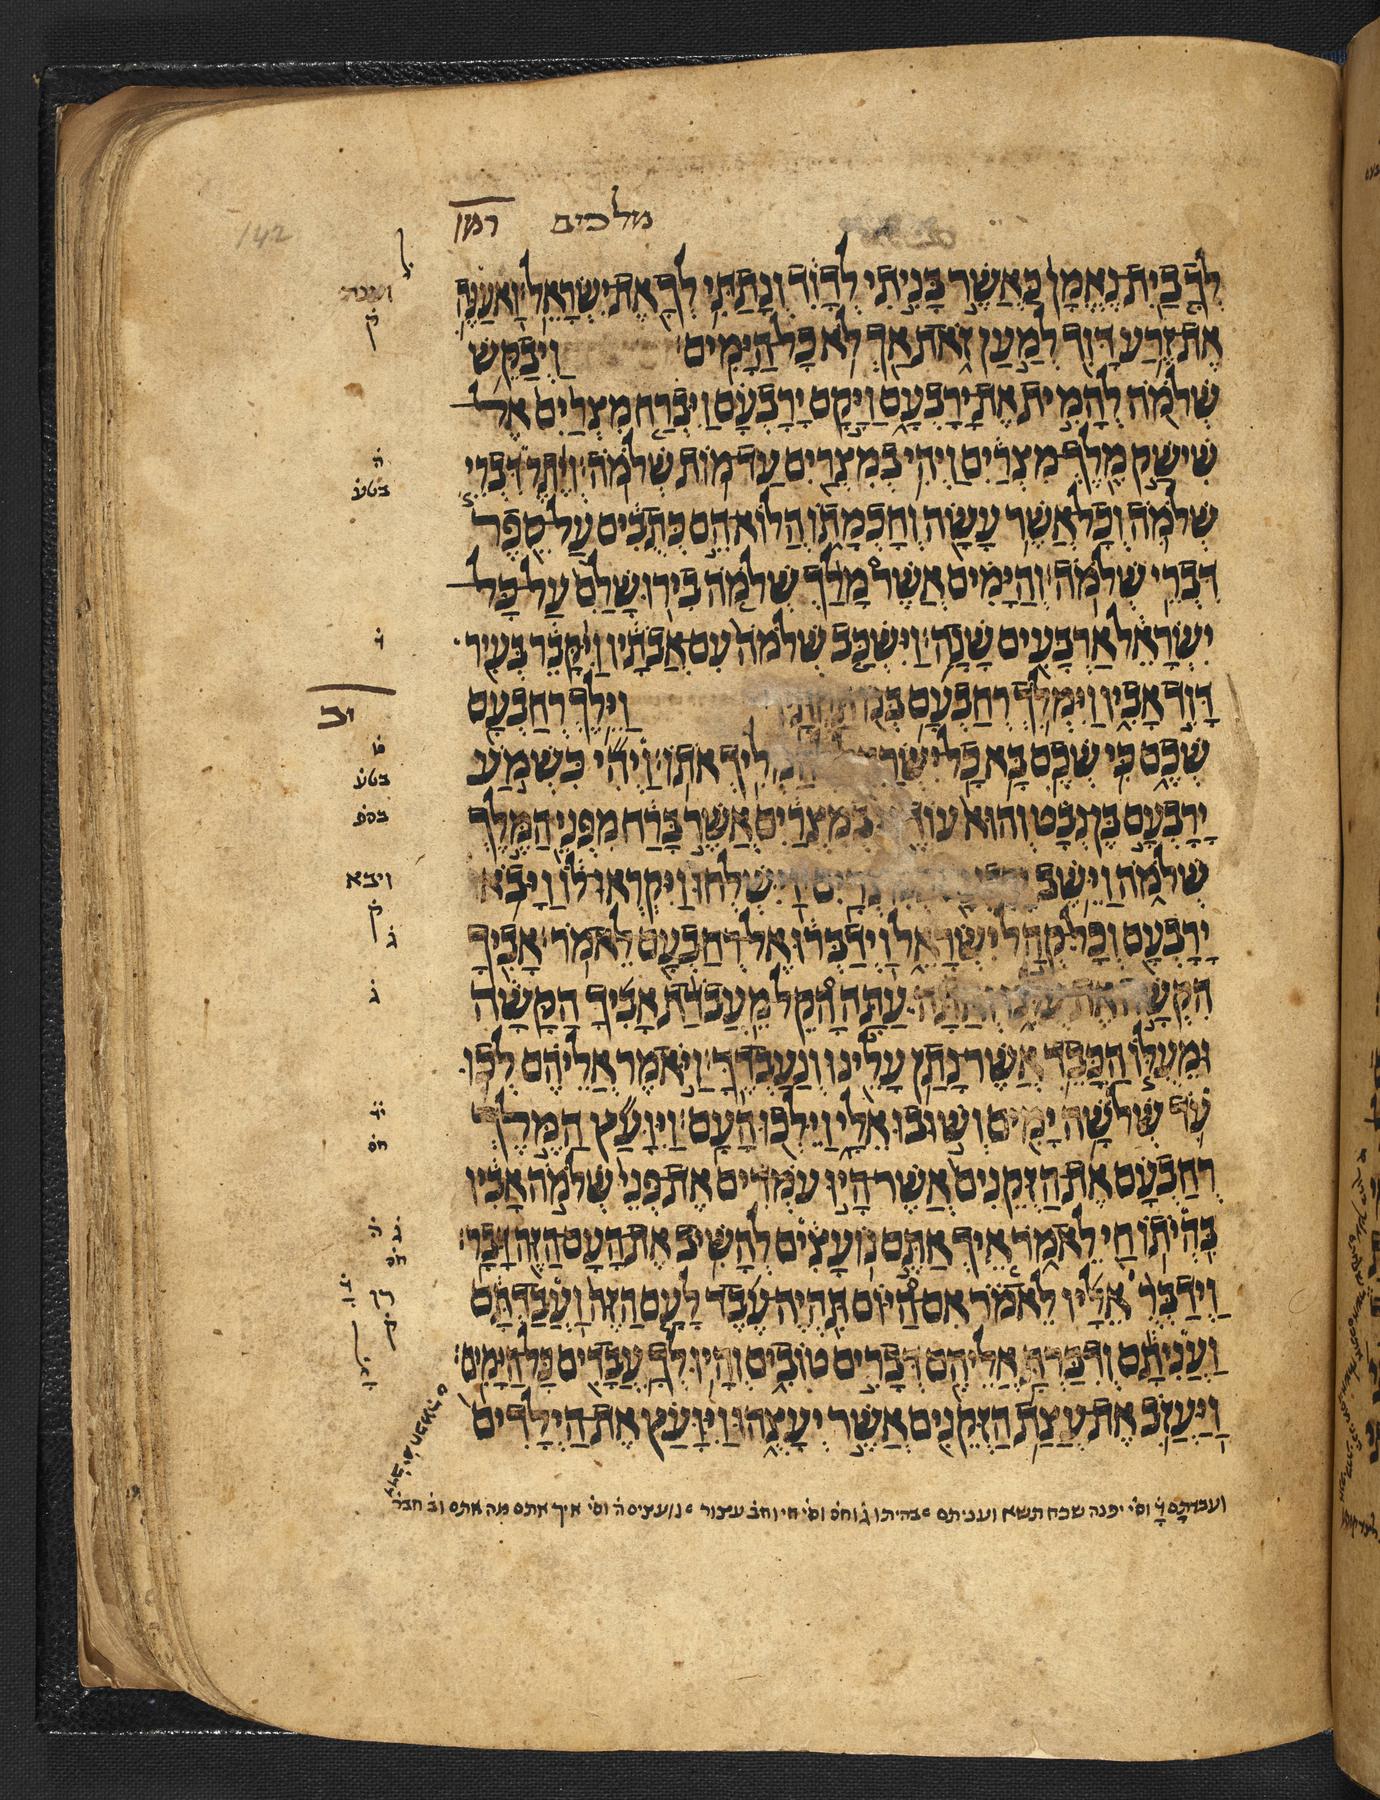 מלכים רמז
142
לך בית נאמן כאשר בניתי לדוד ונתתי לך את ישראל ואענה
את זרע דוד למען זאת אך לא כל הימים ויבקש
שלמה להמית את ירבעם ויקם ירבעם ויברח מצרים אל
שישק מלך מצרים ויהי במצרים עד מות שלמה ויתר דברי
שלמה וכל אשר עשה וחכמתו הלוא הם כתבים על ספר
דברי שלמה והימים אשר מלך שלמה בירושלם על כל
ישראל ארבעים שנה וישכב שלמה עם אבתיו ויקבר בעיר
דוד אביו וימלך רחבעם בנו תחתיו וילך רחבעם
שכם כי שכם בא כל ישראל להמליך אתו ויהי כשמע
ירבעם בן נבט והוא עודנו במצרים אשר ברח מפני המלך
שלמה וישב ירבעם במצרים וישלחו ויקראו לו ויבאו
ירבעם וכל קהל ישראל וידברו אל רחבעם לאמר אביך
הקשה את עלנו ואתה עתה הקל מעבדת אביך הקשה
ומעלו הכבד אשר נתן עלינו ונעבדך ויאמר אליהם לכו
עד שלשה ימים ושובו אלי וילכו העם ויועץ המלך
רחבעם את הזקנים אשר היו עמדים את פני שלמה אביו
בהיתו חי לאמר איך אתם נועצים להשיב את העם הזה דבר
וידבר אליו לאמר אם היום תהיה עבד לעם הזה ועבדתם
ועניתם ודברת אליהם דברים טובים והיו לך עבדים כל הימים
ויעזב את עצת הזקנים אשר יעצהו ויועץ את הילדים
ועבדתם ד וסי יפנה שכח תשא ועניתם בהיתו ג וחס וסי חי וחב עצור נועצים ה וסי איך אתם מה אתם וב חבר
ואענה
ק
ה
בטע
ד
יב
בטע
בפס
ויבא
ק
ג
ג
יד
חס
ג ה
חס
ק